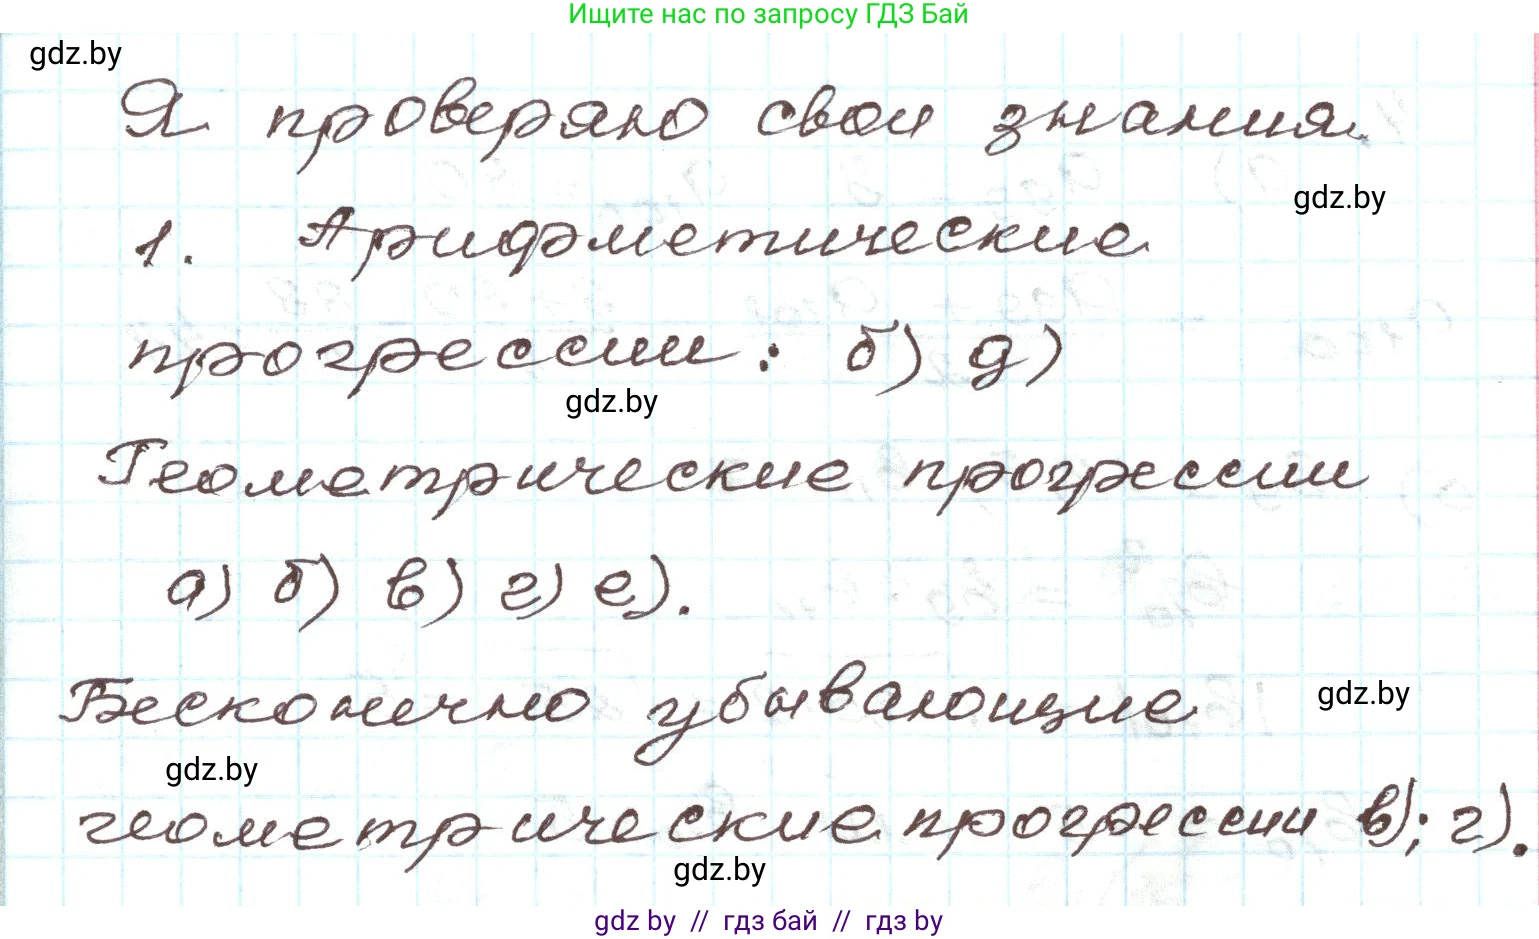 Ищите нас по запросу ГДЗ Бай
gdz.by
Я проверяю свои знания.
gdz.by
1. Арифметические
прогрессии: б) д)
gdz.by
Геометрические прогрессии
а) б) в) г) е).
Бесконечно убывающие
gdz.by
gdz.by
геометрические прогрессии в); г).
gdz.by
gdz by // гдз бай // гдз by